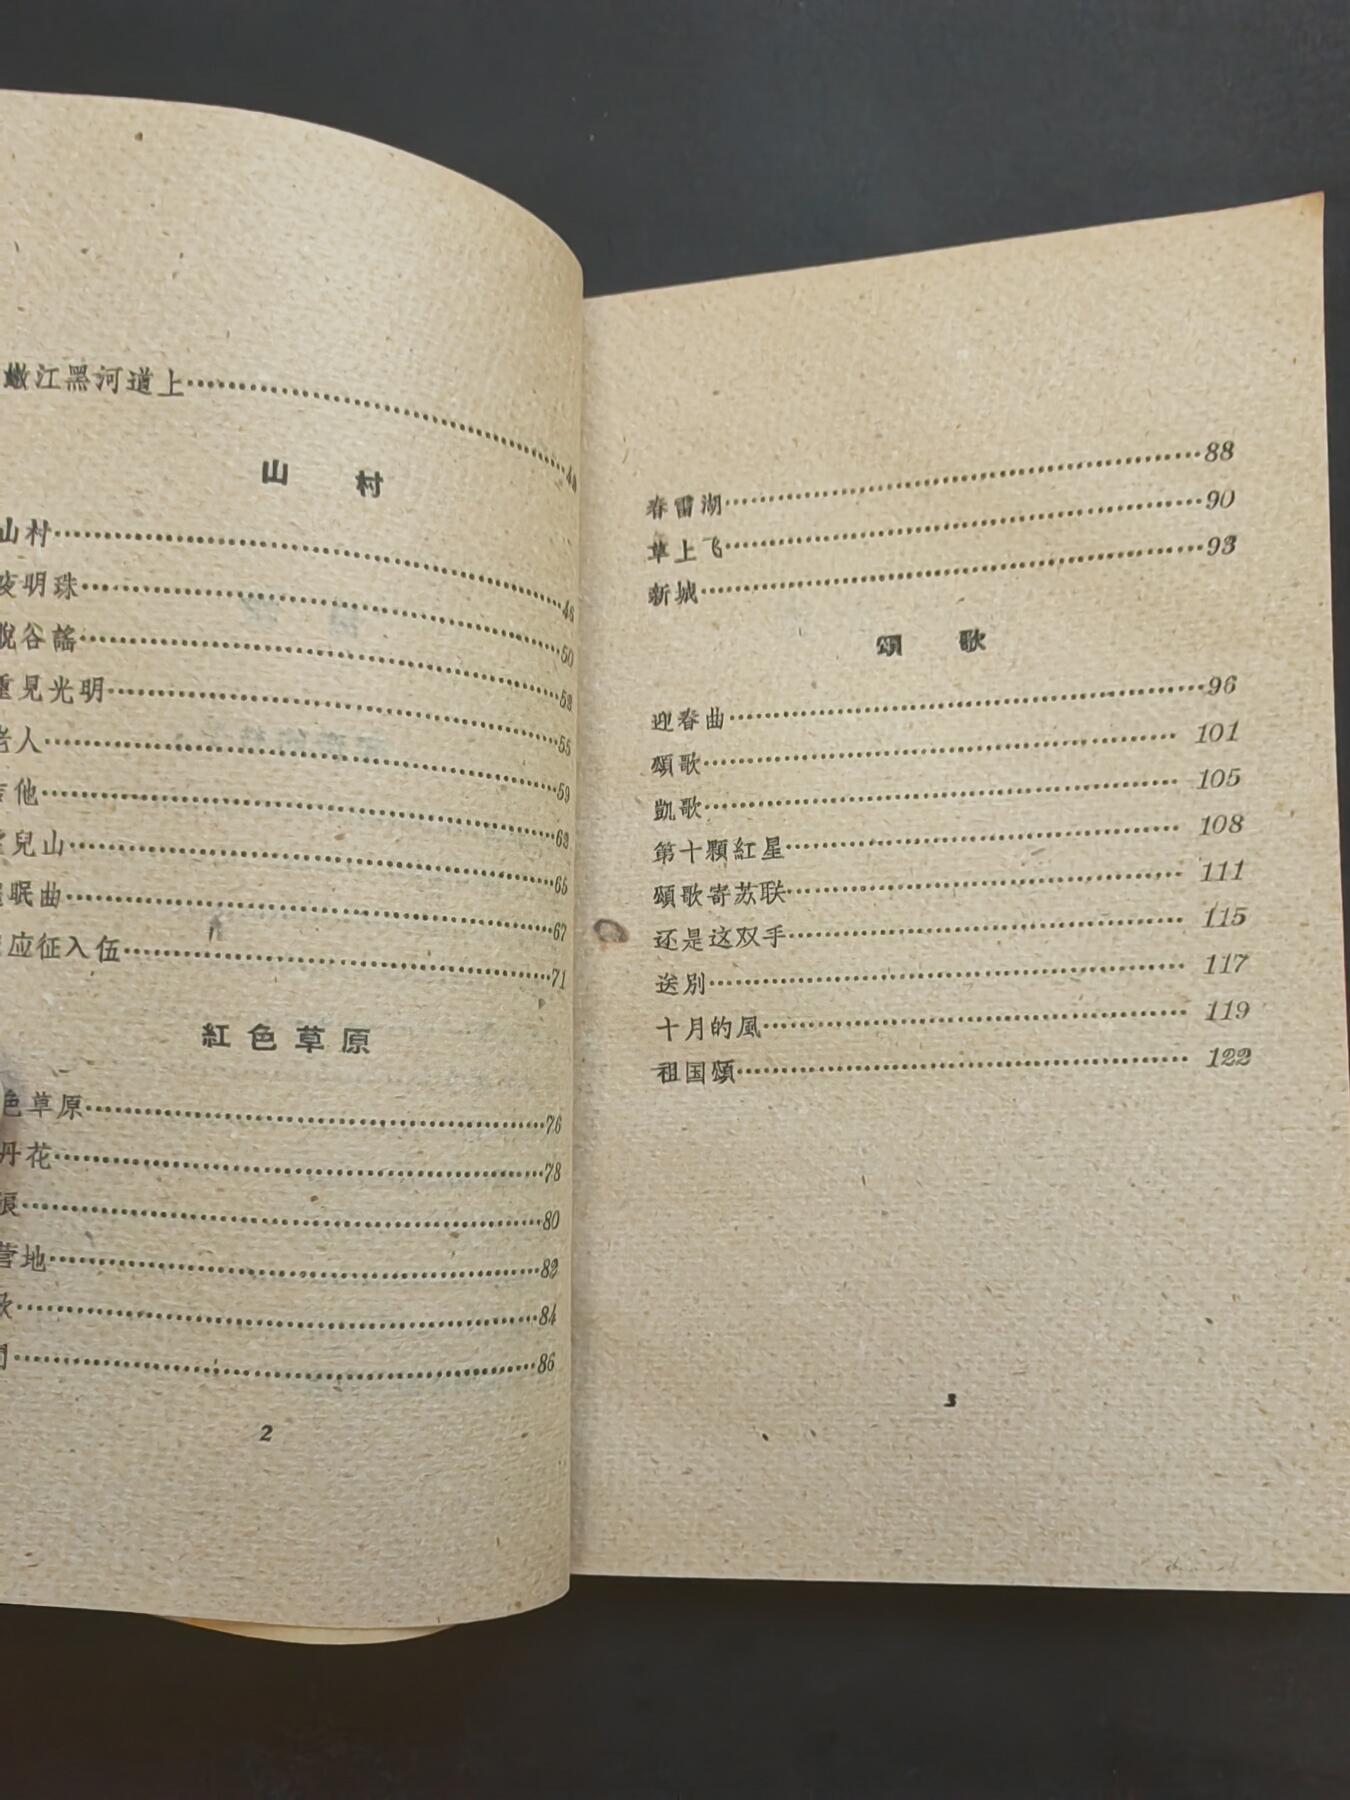 嫩江黑河道上……44
山村
山村……48
夜明珠……50
脫谷謠……52
重見光明……55
老人……59
吉他……63
兒山……65
眠曲……67
应征入伍……71
紅色草原
色草原……76
丹花……78
……80
营地……82
歌……84
……86
2
春雷湖……88
草上飞……90
新城……93
頌歌
迎春曲……96
頌歌……101
凱歌……105
第十顆紅星……108
頌歌寄苏联……111
还是这双手……115
送別……117
十月的風……119
祖国頌……122
3